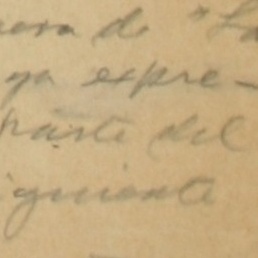 de "La
ya expre-
parte del
iguiente